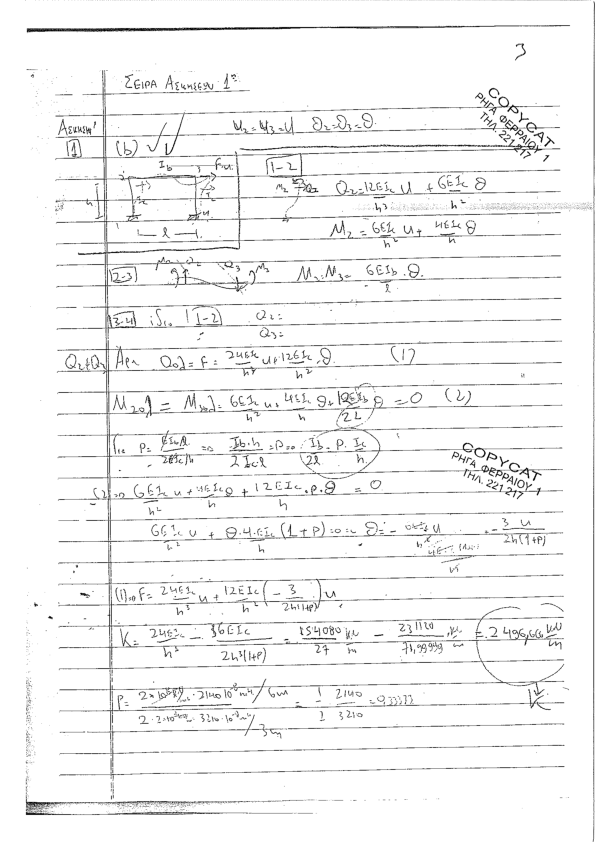 3
ΣΕΙΡΑ ΑΣΚΗΣΕΩΝ 1η
COPYCAT
ΡΗΓΑ ΦΕΡΡΑΙΟΥ 1
ΤΗΛ. 221.217
ΑΣΚΗΣΗ
1 (b) u2=u3=u θ2=θ3=θ.
Ib 3 F
2
h
1 l 4
1-2 M2 Q2
Q2=12EIc/h³ u + 6EIc/h² θ
M2 = 6EIc/h² u + 4EIc/h θ
2-3 M2 Q2 Q3 M3 M2=M3= 6EIb/l · θ.
3-4 1-2 Q2=
Q3=
Q2+Q3 Άρα Qολ = F = 24EIc/h³ u + 12EIc/h² · θ. (1)
M2ολ = M3ολ = 6EIc/h² u + 4EIc/h θ + 12EIb/2L θ = 0 (2)
P = EIb/l / 2EIc/h => Ib·h / 2Ic·l = P => Ib/2l = P · Ic/h
COPYCAT
ΡΗΓΑ ΦΕΡΡΑΙΟΥ 1
ΤΗΛ. 221.217
(2)=> 6EIc/h² u + 4EIc/h θ + 12EIc/h · P · θ = 0
6EIc/h² u + θ·4·EIc/h (1+P) =0 => θ = - 3 u / 2h(1+P)
(1)=> F = 24EIc/h³ u + 12EIc/h² (- 3/2h(1+P)) u
K = 24EIc/h³ - 36EIc/2h³(1+P) = 154080/27 kN/m - 231120/71,99999 kN/m = 2496,66 kN/m
K
P = 2·2140 10⁻⁸ m⁴ / 6m / 2·2· 3210·10⁻⁸ m⁴ / 3m = 1/2 2140/3210 = 0,33333